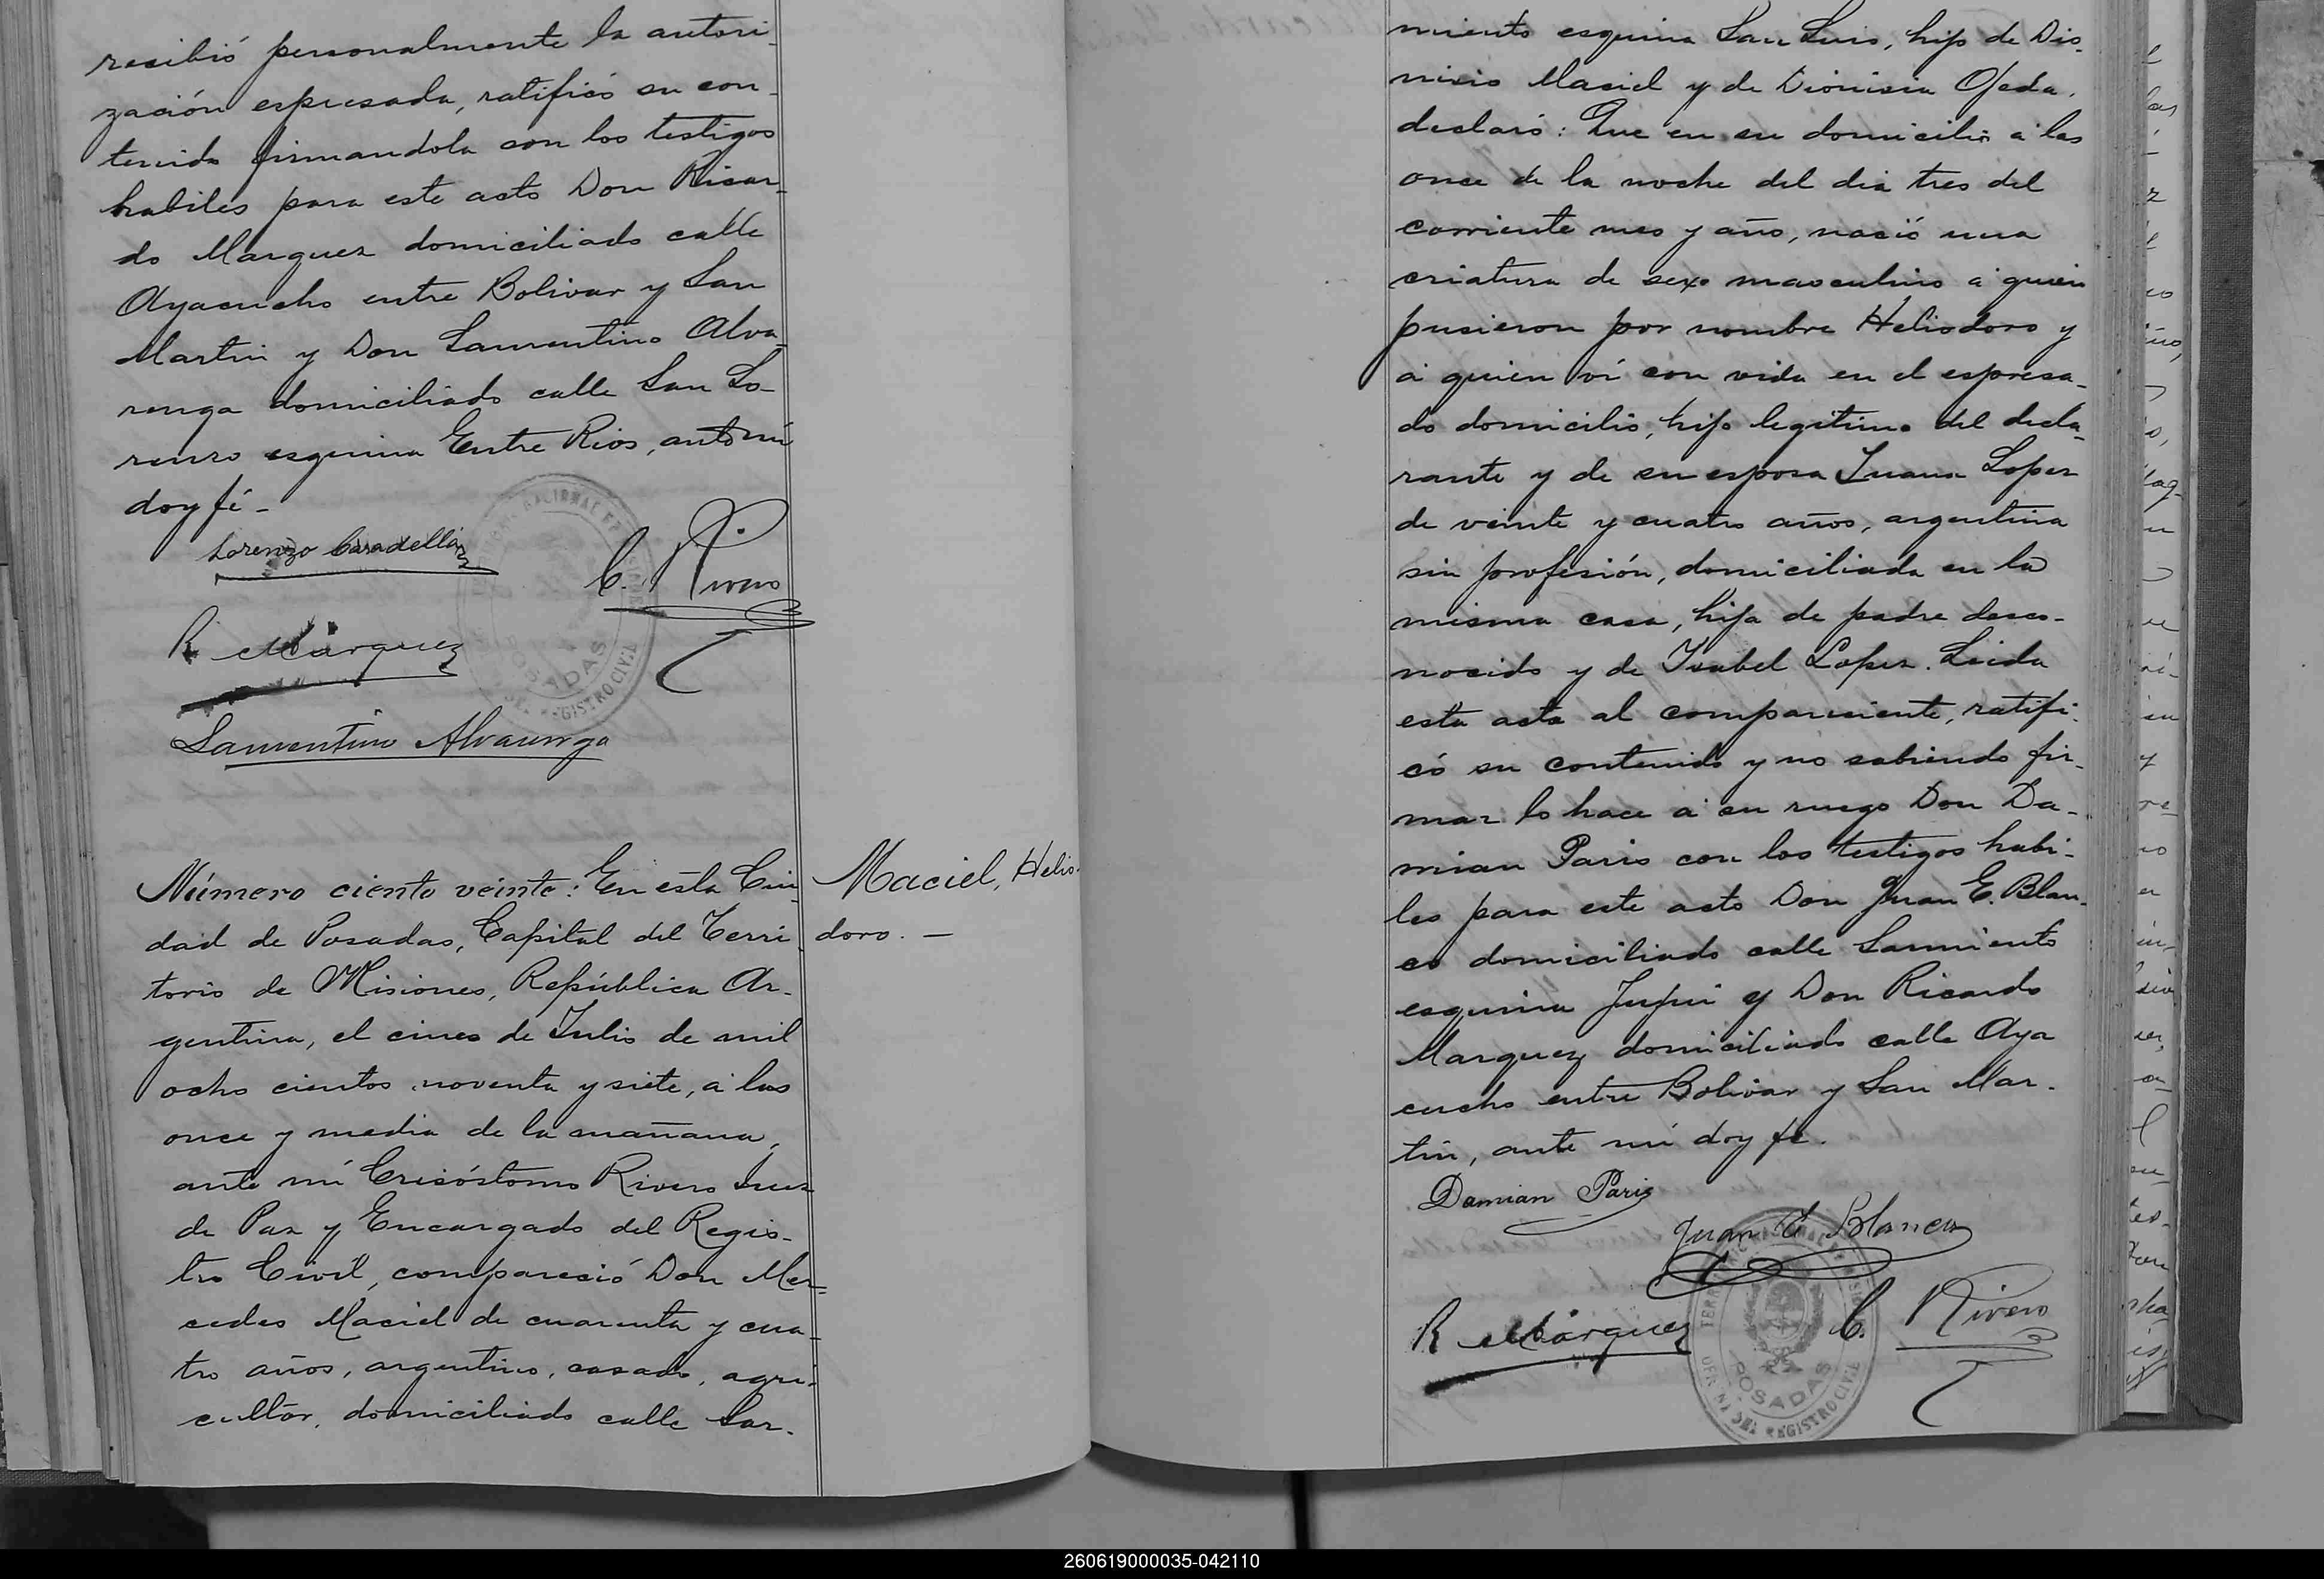 recibió personalmente la autori-
zación espresada, ratificó su con-
tenido firmandola con los testigos
habiles para este acto Don Ricar-
do Marquez domiciliado calle
Ayacucho entre Bolivar y San
Martin y Don Laurentino Alva-
renga domiciliado calle San Lo-
renzo esquina Entre Rios, ante mi
doy fé -
Lorenzo Caradella
C. Rivero
R Márquez
POSADAS
DEL REGISTRO CIVIL
Laurentino Alvarenga
Número ciento veinte: En esta Ciu-
dad de Posadas, Capital del Terri-
torio de Misiones, República Ar-
gentina, el cinco de Julio de mil
ocho cientos noventa y siete, á las
once y media de la mañana,
ante mí Crisóstomo Rivero Juez
de Paz y Encargado del Regis-
tro Civil, compareció Don Mer-
cedes Maciel de cuarenta y cua-
tro años, argentino, casado, agri-
cultor, domiciliado calle Sar-
Maciel, Helio-
doro. -
miento esquina San Luis, hijo de Dio-
nisio Maciel y de Dionisia Ojeda,
declaró: Que en su domicilio á las
once de la noche del dia tres del
corriente mes y año, nació una
criatura de sexo masculino á quien
pusieron por nombre Heliodoro y
á quien ví con vida en el espresa-
do domicilio, hijo legitimo del decla-
rante y de su esposa Juana Lopez
de veinte y cuatro años, argentina
sin profesión, domiciliada en la
misma casa, hija de padre desco-
nocido y de Ysabel Lopez. Leida
esta acta al compareciente, ratifi-
có su contenido y no sabiendo fir-
mar lo hace á su ruego Don Da-
mian Paris con los testigos habi-
les para este acto Don Juan E. Blan-
co domiciliado calle Sarmiento
esquina Jujui y Don Ricardo
Marquez domiciliado calle Aya
cucho entre Bolivar y San Mar-
tin, ante mi doy fé.
Damian Paris
Juan E Blanco
R Márquez
C. Rivero
POSADAS
OFICINA DEL REGISTRO CIVIL
260619000035-042110